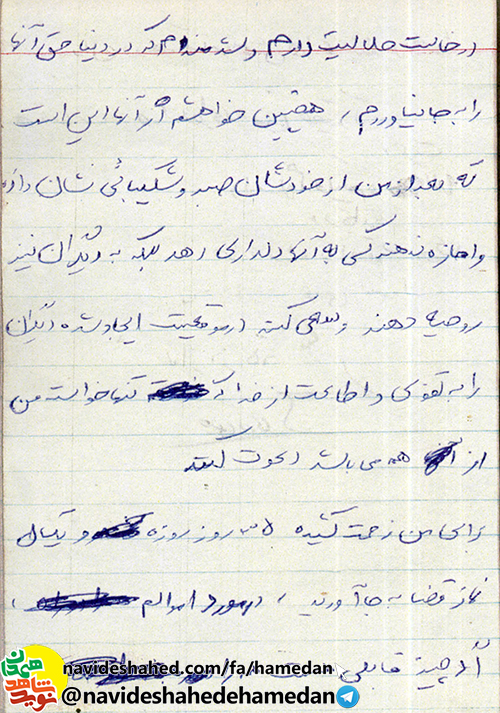 درخواست حلالیت دارم و شرمنده‌ام که در دنیا حق آنها
را به جا نیاوردم، همچنین خواهشم از آنها این است
که بعد از من از خودشان صبر و شکیبائی نشان داده
و اجازه ندهند کسی به آنها دلداری دهد بلکه به دیگران نیز
روحیه دهند و سعی کنند از موقعیت ایجاد شده دیگران
را به تقوی و اطاعت از خدا که تنها خواست من
از همه می باشد دعوت کنند
برای من زحمت کشیده ۳۵ روز روزه و یکسال
نماز قضا به جا آورید، در مورد اموالم
اگر چیز قابلی
navideshahed.com/fa/hamedan
@navideshahedehamedan
نوید شاهد همدان